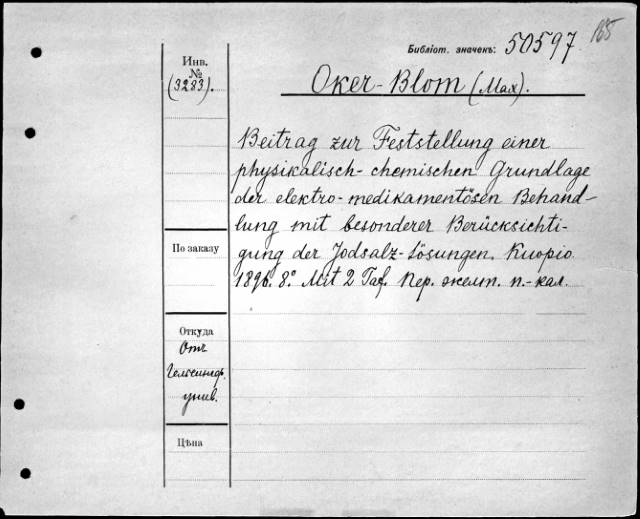 165
Библіот. значенъ: 50597
Инв.
№
(3283).
Oker-Blom (Max).
Beitrag zur Feststellung einer
physikalisch-chemischen Grundlage
der elektro-medikamentösen Behand-
lung mit besonderer Berücksichti-
gung der Jodsalz-Lösungen. Kuopio
1896. 8.° Mit 2 Taf. Пер. желт. п.-кал.
По заказу
Откуда
Отъ
Гельсингф.
унив.
Цѣна